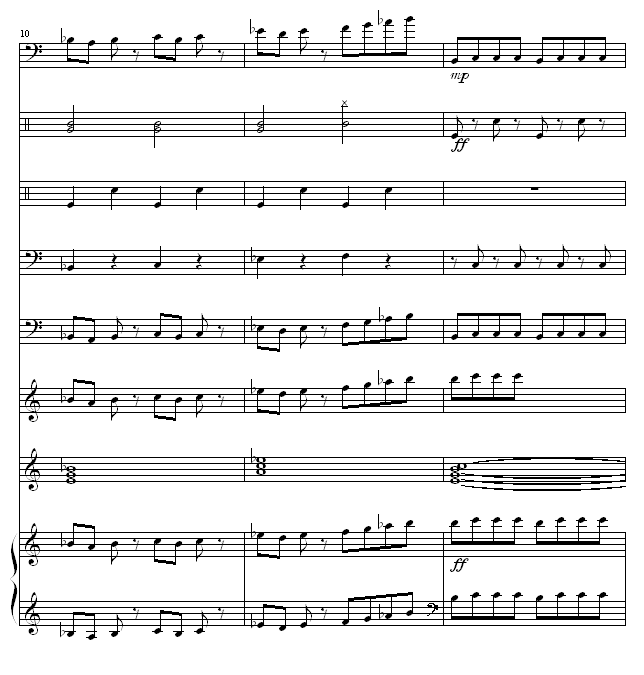 10
mp
ff
ff